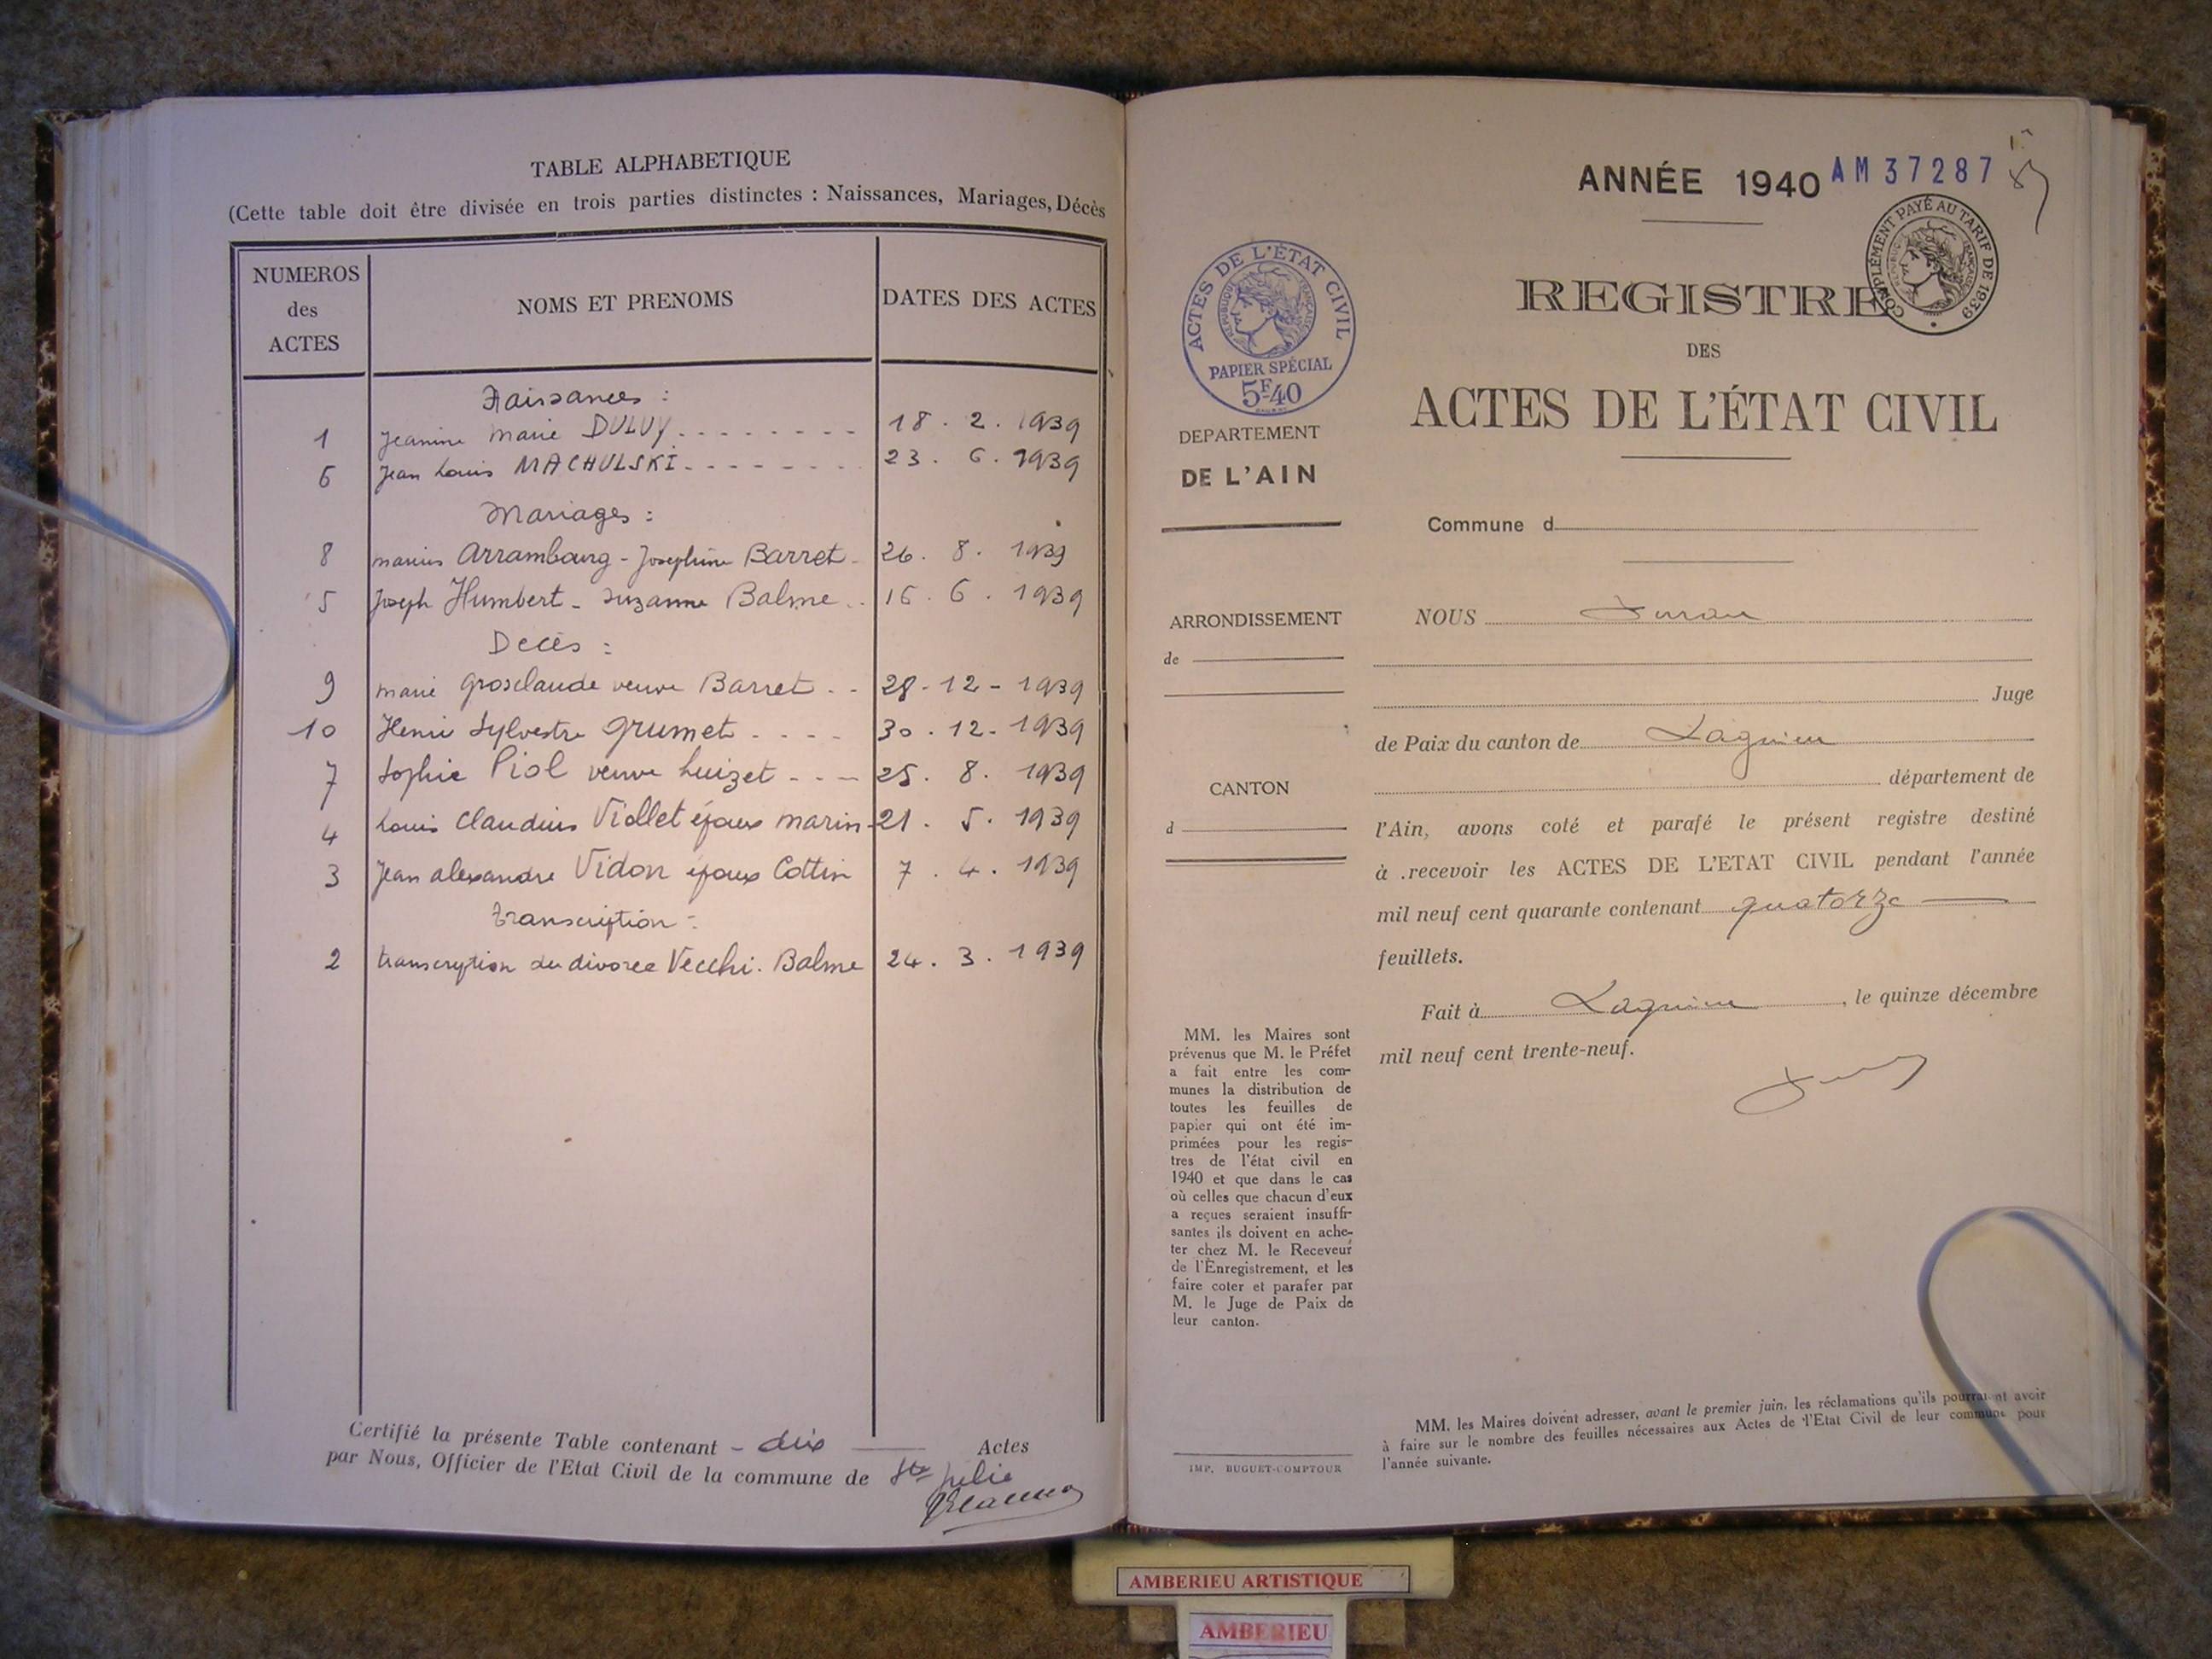 TABLE ALPHABETIQUE
(Cette table doit être divisée en trois parties distinctes : Naissances, Mariages, Décès
NUMEROS des ACTES
NOMS ET PRENOMS
DATES DES ACTES
Naissances :
1 Jeanine Marie DULUY 18 . 2 . 1939
6 Jean Louis MACHULSKI 23 . 6 . 1939
Mariages :
8 Marius Arrambourg - Josephine Barret 26 . 8 . 1939
5 Joseph Humbert - Suzanne Balme 16 . 6 . 1939
Decès :
9 Marie Grosclaude veuve Barret 28 - 12 - 1939
10 Henri Sylvestre Grumet 30 . 12 - 1939
7 Sophie Piol veuve Luizet 25 . 8 . 1939
4 Louis Claudius Viollet époux Marin 21 . 5 . 1939
3 Jean Alexandre Vidon époux Cottin 7 . 4 . 1939
Transcription :
2 transcription du divorce Vecchi . Balme 24 . 3 . 1939
Certifié la présente Table contenant - dix Actes
par Nous, Officier de l'Etat Civil de la commune de Ste Julie
ANNÉE 1940 AM37287
COMPLÉMENT PAYÉ AU TARIF DE 1939
ACTES DE L'ÉTAT CIVIL
RÉPUBLIQUE FRANÇAISE
PAPIER SPÉCIAL
5F40
REGISTRE
DES
ACTES DE L'ÉTAT CIVIL
DEPARTEMENT
DE L'AIN
Commune d
ARRONDISSEMENT
de
CANTON
d
NOUS
Juge
de Paix du canton de Lagnieu
département de
l'Ain, avons coté et parafé le présent registre destiné
à recevoir les ACTES DE L'ETAT CIVIL pendant l'année
mil neuf cent quarante contenant quatorze
feuillets.
Fait à Lagnieu, le quinze décembre
mil neuf cent trente-neuf.
MM. les Maires sont
prévenus que M. le Préfet
a fait entre les com-
munes la distribution de
toutes les feuilles de
papier qui ont été im-
primées pour les regis-
tres de l'état civil en
1940 et que dans le cas
où celles que chacun d'eux
a reçues seraient insuffi-
santes ils doivent en ache-
ter chez M. le Receveur
de l'Enregistrement, et les
faire coter et parafer par
M. le Juge de Paix de
leur canton.
IMP. BUGUET-COMPTOUR
MM. les Maires doivent adresser, avant le premier juin, les réclamations qu'ils pourraient avoir
à faire sur le nombre des feuilles nécessaires aux Actes de l'Etat Civil de leur commune pour
l'année suivante.
AMBERIEU ARTISTIQUE
AMBERIEU